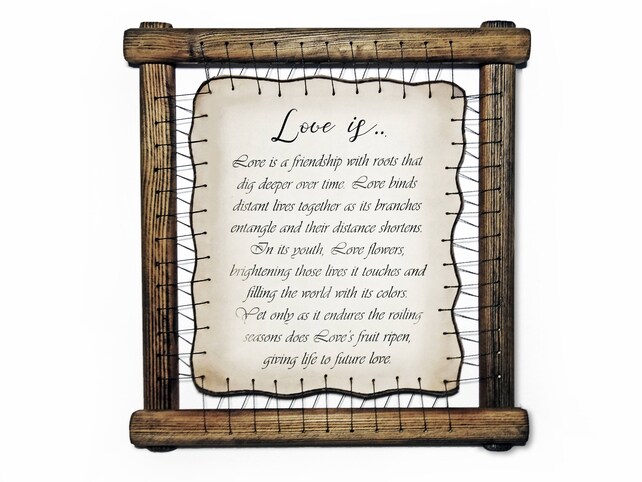 Love is..
Love is a friendship with roots that
dig deeper over time. Love binds
distant lives together as its branches
entangle and their distance shortens.
In its youth, Love flowers,
brightening those lives it touches and
filling the world with its colors.
Yet only as it endures the roiling
seasons does Love's fruit ripen,
giving life to future love.